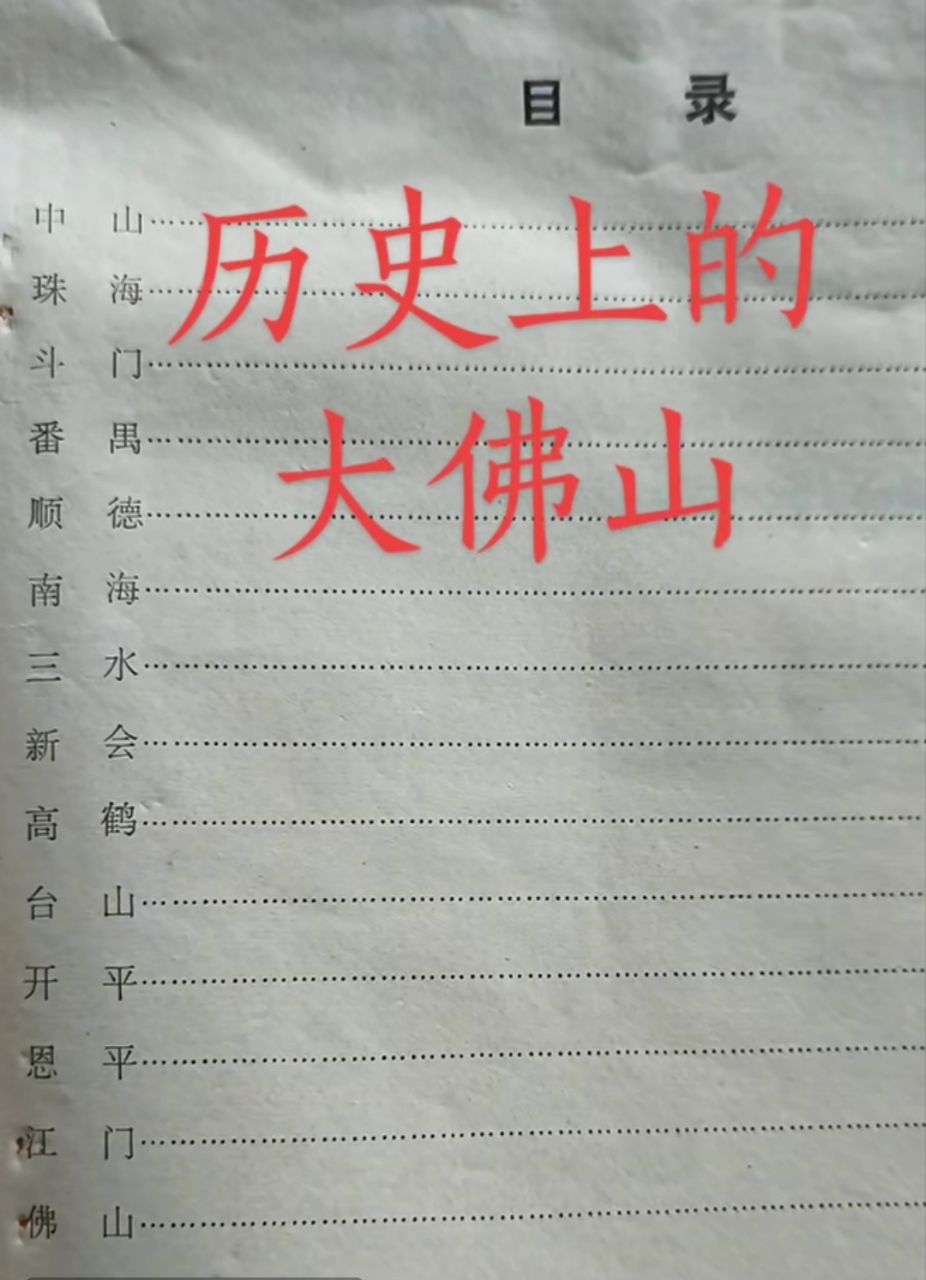 目 录
历史上的
大佛山
中 山
珠 海
斗 门
番 禺
顺 德
南 海
三 水
新 会
高 鹤
台 山
开 平
恩 平
江 门
佛 山